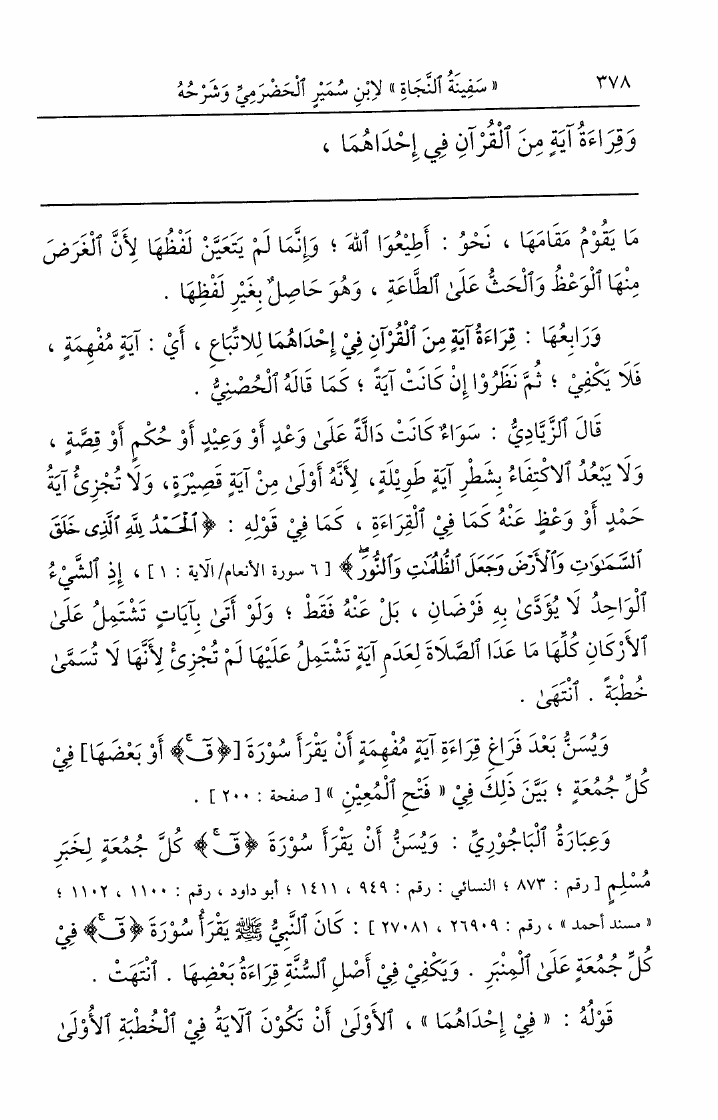 ٣٧٨ « سَفِينَةُ ٱلنَّجَاةِ » لِابْنِ سُمَيْرٍ ٱلْحَضْرَمِيِّ وَشَرْحُهُ
وَقِرَاءَةُ آيَةٍ مِنَ ٱلْقُرْآنِ فِي إِحْدَاهُمَا ،
مَا يَقُوْمُ مَقَامَهَا ، نَحْوُ : أَطِيْعُوَا ٱللهَ ؛ وَإِنَّمَا لَمْ يَتَعَيَّنْ لَفْظُهَا لِأَنَّ ٱلْغَرَضَ
مِنْهَا ٱلْوَعْظُ وَٱلْحَثُّ عَلَىٰ ٱلطَّاعَةِ ، وَهُوَ حَاصِلٌ بِغَيْرِ لَفْظِهَا .
وَرَابِعُهَا : قِرَاءَةُ آيَةٍ مِنَ ٱلْقُرْآنِ فِيْ إِحْدَاهُمَا لِلاتِّبَاعِ ، أَيْ : آيَةٍ مُفْهِمَةٍ ،
فَلَا يَكْفِيْ ؛ ثُمَّ نَظَرُوْا إِنْ كَانَتْ آيَةً ؛ كَمَا قَالَهُ ٱلْحُصْنِيُّ .
قَالَ ٱلزِّيَادِيُّ : سَوَاءٌ كَانَتْ دَالَّةً عَلَىٰ وَعْدٍ أَوْ وَعِيْدٍ أَوْ حُكْمٍ أَوْ قِصَّةٍ ،
وَلَا يَبْعُدُ ٱلاكْتِفَاءُ بِشَطْرِ آيَةٍ طَوِيْلَةٍ، لِأَنَّهُ أَوْلَىٰ مِنْ آيَةٍ قَصِيْرَةٍ، وَلَا تُجْزِئُ آيَةُ
حَمْدٍ أَوْ وَعْظٍ عَنْهُ كَمَا فِيْ ٱلْقِرَاءَةِ ، كَمَا فِيْ قَوْلِهِ : ﴿ ٱلْحَمْدُ لِلَّهِ ٱلَّذِى خَلَقَ
ٱلسَّمَـٰوَٰتِ وَٱلْأَرْضَ وَجَعَلَ ٱلظُّلُمَـٰتِ وَٱلنُّورَ ۖ ﴾ [ ٦ سورة الأنعام/الآية : ١ ] ، إِذِ ٱلشَّيْءُ
ٱلْوَاحِدُ لَا يُؤَدَّىٰ بِهِ فَرْضَانِ ، بَلْ عَنْهُ فَقَطْ ؛ وَلَوْ أَتَىٰ بِآيَاتٍ تَشْتَمِلُ عَلَىٰ
ٱلأَرْكَانِ كُلِّهَا مَا عَدَا ٱلصَّلَاةَ لِعَدَمِ آيَةٍ تَشْتَمِلُ عَلَيْهَا لَمْ تُجْزِئْ لِأَنَّهَا لَا تُسَمَّىٰ
خُطْبَةً . ٱنْتَهَىٰ .
وَيُسَنُّ بَعْدَ فَرَاغِ قِرَاءَةِ آيَةٍ مُفْهِمَةٍ أَنْ يَقْرَأَ سُوْرَةَ [﴿ قٓ ۚ ﴾ أَوْ بَعْضَهَا] فِيْ
كُلِّ جُمُعَةٍ ؛ بَيَّنَ ذَلِكَ فِيْ « فَتْحِ ٱلْمُعِيْنِ » [ صفحة : ٢٠٠ ] .
وَعِبَارَةُ ٱلْبَاجُوْرِيِّ : وَيُسَنُّ أَنْ يَقْرَأَ سُوْرَةَ ﴿ قٓ ۚ ﴾ كُلَّ جُمُعَةٍ لِخَبَرِ
مُسْلِمٍ [ رقم : ٨٧٣ ؛ النسائي : رقم : ٩٤٩ ، ١٤١١ ؛ أبو داود ، رقم : ١١٠٠ ، ١١٠٢ ؛
« مسند أحمد » ، رقم : ٢٦٩٠٩ ، ٢٧٠٨١ ] : كَانَ ٱلنَّبِيُّ ﷺ يَقْرَأُ سُوْرَةَ ﴿ قٓ ۚ ﴾ فِيْ
كُلِّ جُمُعَةٍ عَلَىٰ ٱلْمِنْبَرِ . وَيَكْفِيْ فِيْ أَصْلِ ٱلسُّنَّةِ قِرَاءَةُ بَعْضِهَا . ٱنْتَهَتْ .
قَوْلُهُ : « فِيْ إِحْدَاهُمَا » ، ٱلأَوْلَىٰ أَنْ تَكُوْنَ ٱلآيَةُ فِيْ ٱلْخُطْبَةِ ٱلأُوْلَىٰ